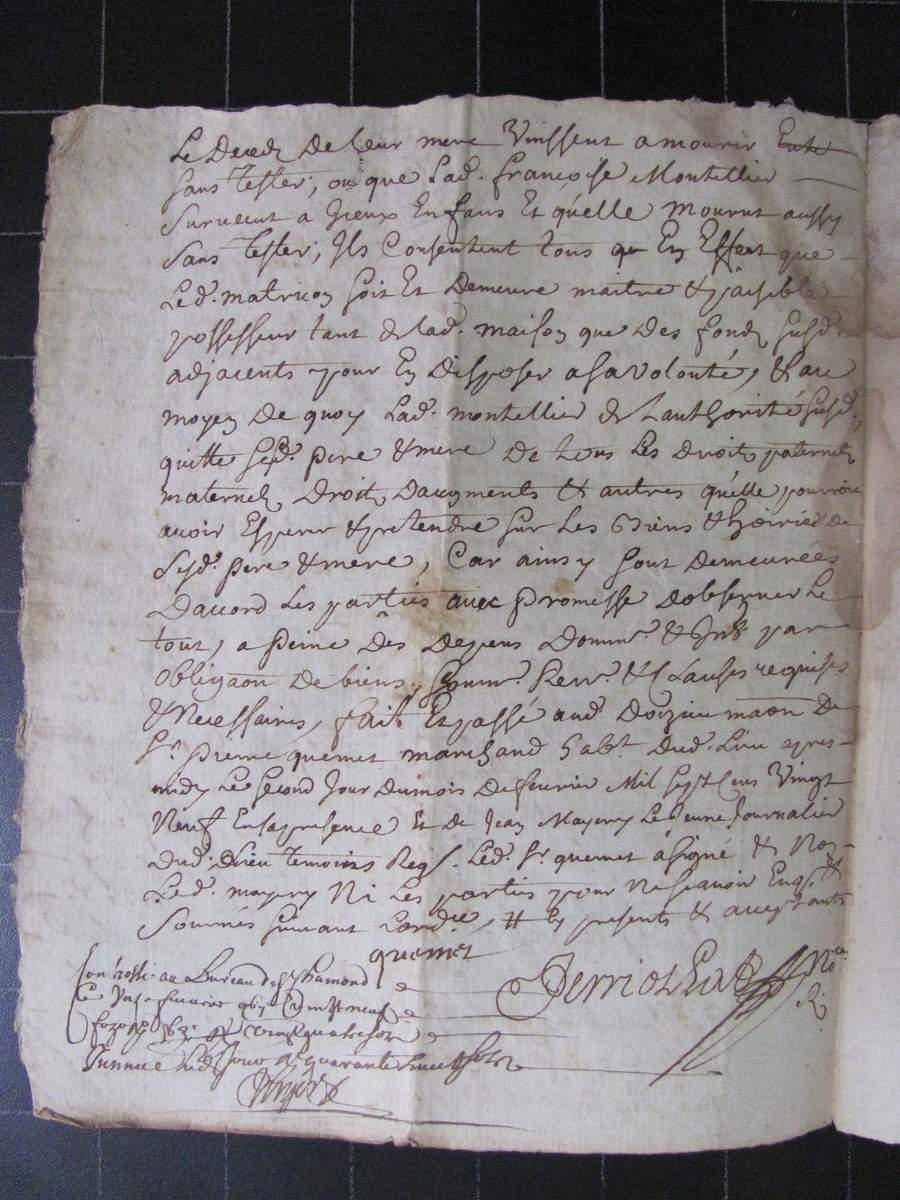 Le Deceds De leur mere Vinssent a mourir
sans tester, ou que Lad. francoise Montellier
survecut a Iceux Enfans Et quelle mourut aussy
sans tester, Ils Consentent tous En Effect que
Led. matricon soit Et Demeure maitre & paisible
possesseur tant de lad. maison que Des fonds susd.
adjacents pour En Disposer a sa volonté, & au
moyen De quoy Lad. montellier de Lauthorité susd.
quitte sesd. pere & mere De tous Les Droits paternels
maternels Droits Daugments & autres quelle pourroit
avoir Esperer & pretendre sur Les Biens & hoiries de
Sesd. pere & mere, Car ainsy sont Demeurées
Daccord Les parties avec promesse Dobserver Le
tout, a peine Des Depens Domm. & Int. par
obligaon De biens, soum. Ren. & Clauses requises
& Necessaires, fait Et passé aud. Doizieu maon De
Sr. pierre quemet marchand habt. Dud. Lieu apres
midy Le second Jour Du mois De fevrier Mil sept Cens Vingt
Neuf En sa presence Et de Jean Mayery Le Jeune Journalier
Dud. Lieu temoins Reqs. Led. Sr. quemet a signé & Non
Led. mayery Ni Les parties pour Ne scavoir Enqs. &
Sommés suivant Lord., # En presents & acceptants
quemet
Controllé au Bureau de St Chamond
Ce fevrier 1729 Vingt neuf
quatre sols
Insinué led. Jour quarante huit sols